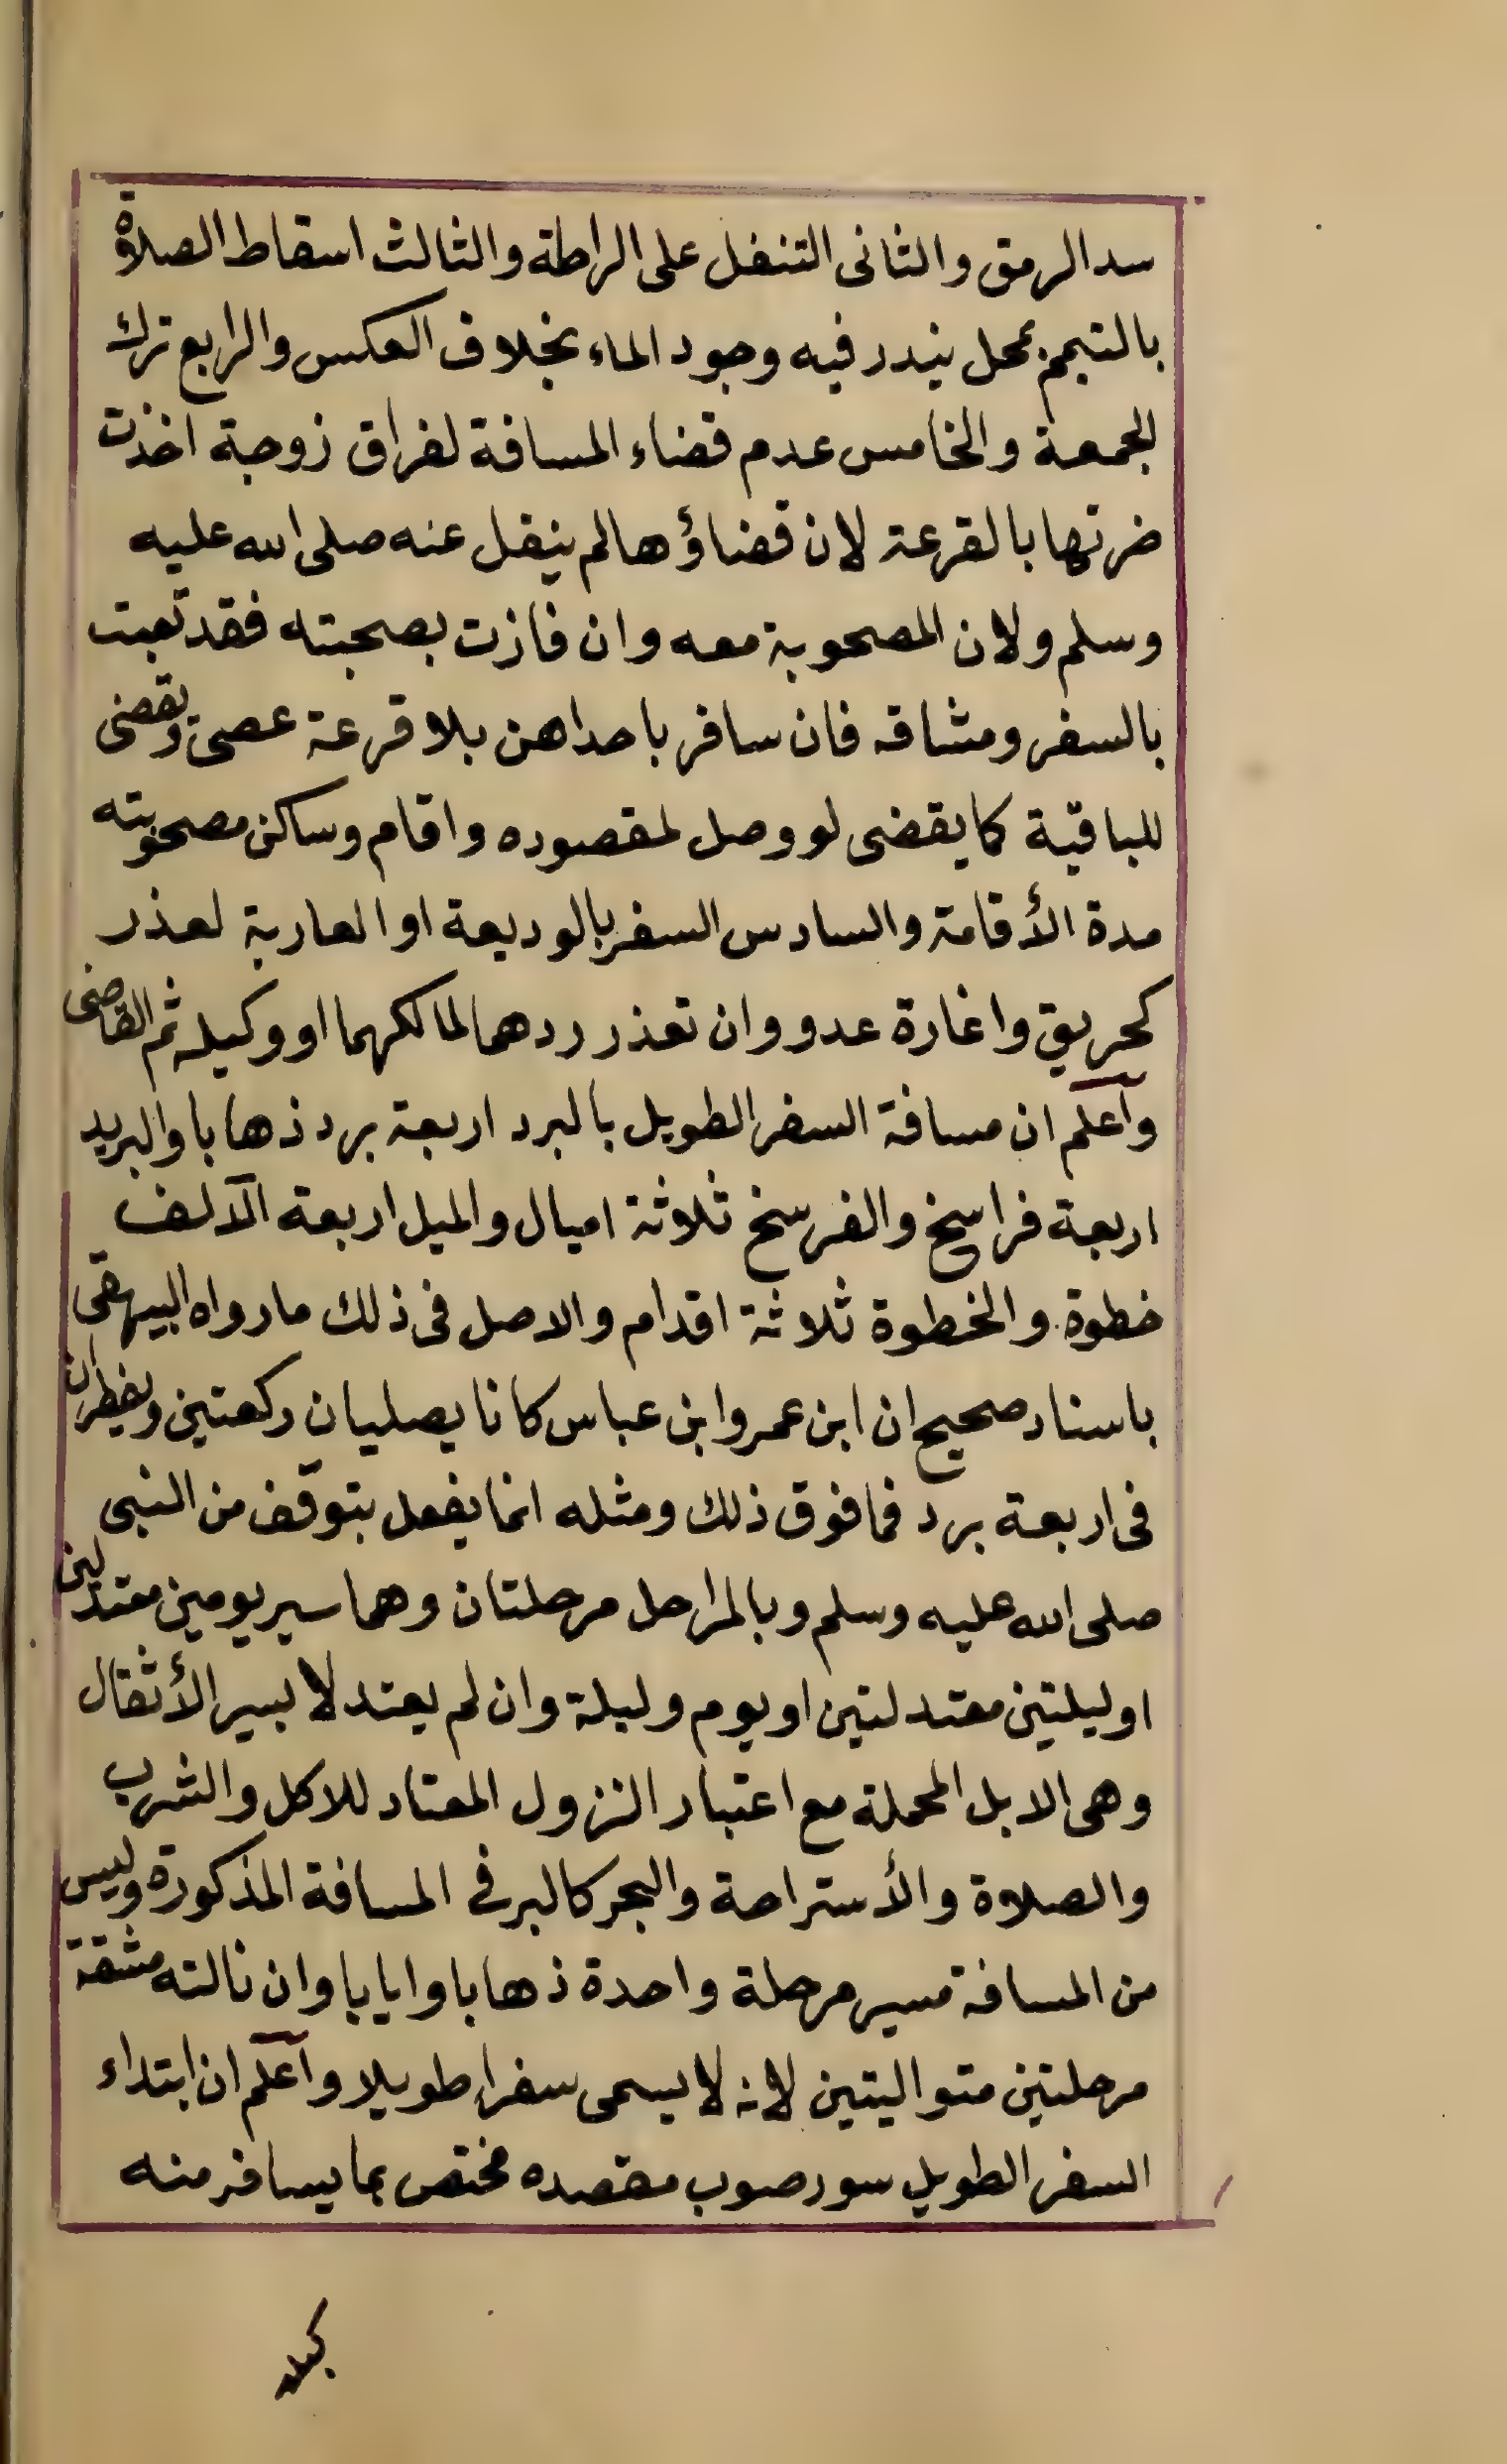 سد الرمق والثانى التنفل على الراحلة والثالث اسقاط الصلاة
بالتيمم بمحل يندر فيه وجود الماء بخلاف العكس والرابع ترك
الجمعة والخامس عدم قضاء المسافة لفراق زوجة اخذت
ضرتها بالقرعة لان قضاؤها لم ينقل عنه صلى الله عليه
وسلم ولان المصحوبة معه وان فازت بصحبته فقد تعبت
بالسفر ومشاقه فان سافر باحداهن بلا قرعة عصى وتقضى
للباقية كما يقضى لو وصل لمقصوده واقام وساكن مصحوبته
مدة الأقامة والسادس السفر بالوديعة او العارية لعذر
كحريق واغارة عدو وان تعذر ردهما لمالكهما او وكيله ثم القاضى
وآعلم ان مسافة السفر الطويل بالبرد اربعة برد ذهابا والبريد
اربعة فراسخ والفرسخ ثلاثة اميال والميل اربعة آلالف
خطوة والخطوة ثلاثة اقدام والاصل فى ذلك ما رواه البيهقى
باسناد صحيح ان ابن عمر وابن عباس كانا يصليان ركعتين ويفطران
فى اربعة برد فما فوق ذلك ومثله انما يفعل بتوقف من النبى
صلى الله عليه وسلم وبالمراحل مرحلتان وهما سير يومين معتدلين
او ليلتين معتدلتين او يوم وليلة وان لم يعتدلا بسير الأثقال
وهى الابل المحملة مع اعتبار النزول المعتاد للاكل والشرب
والصلاة والأستراحة والبحر كالبر فى المسافة المذكورة وليس
من المسافة مسير مرحلة واحدة ذهابا وايابا وان نالته مشقة
مرحلتين متواليتين لانه لا يسمى سفرا طويلا وآعلم ان ابتداء
السفر الطويل سور صوب مقصده مختص بما يسافر منه